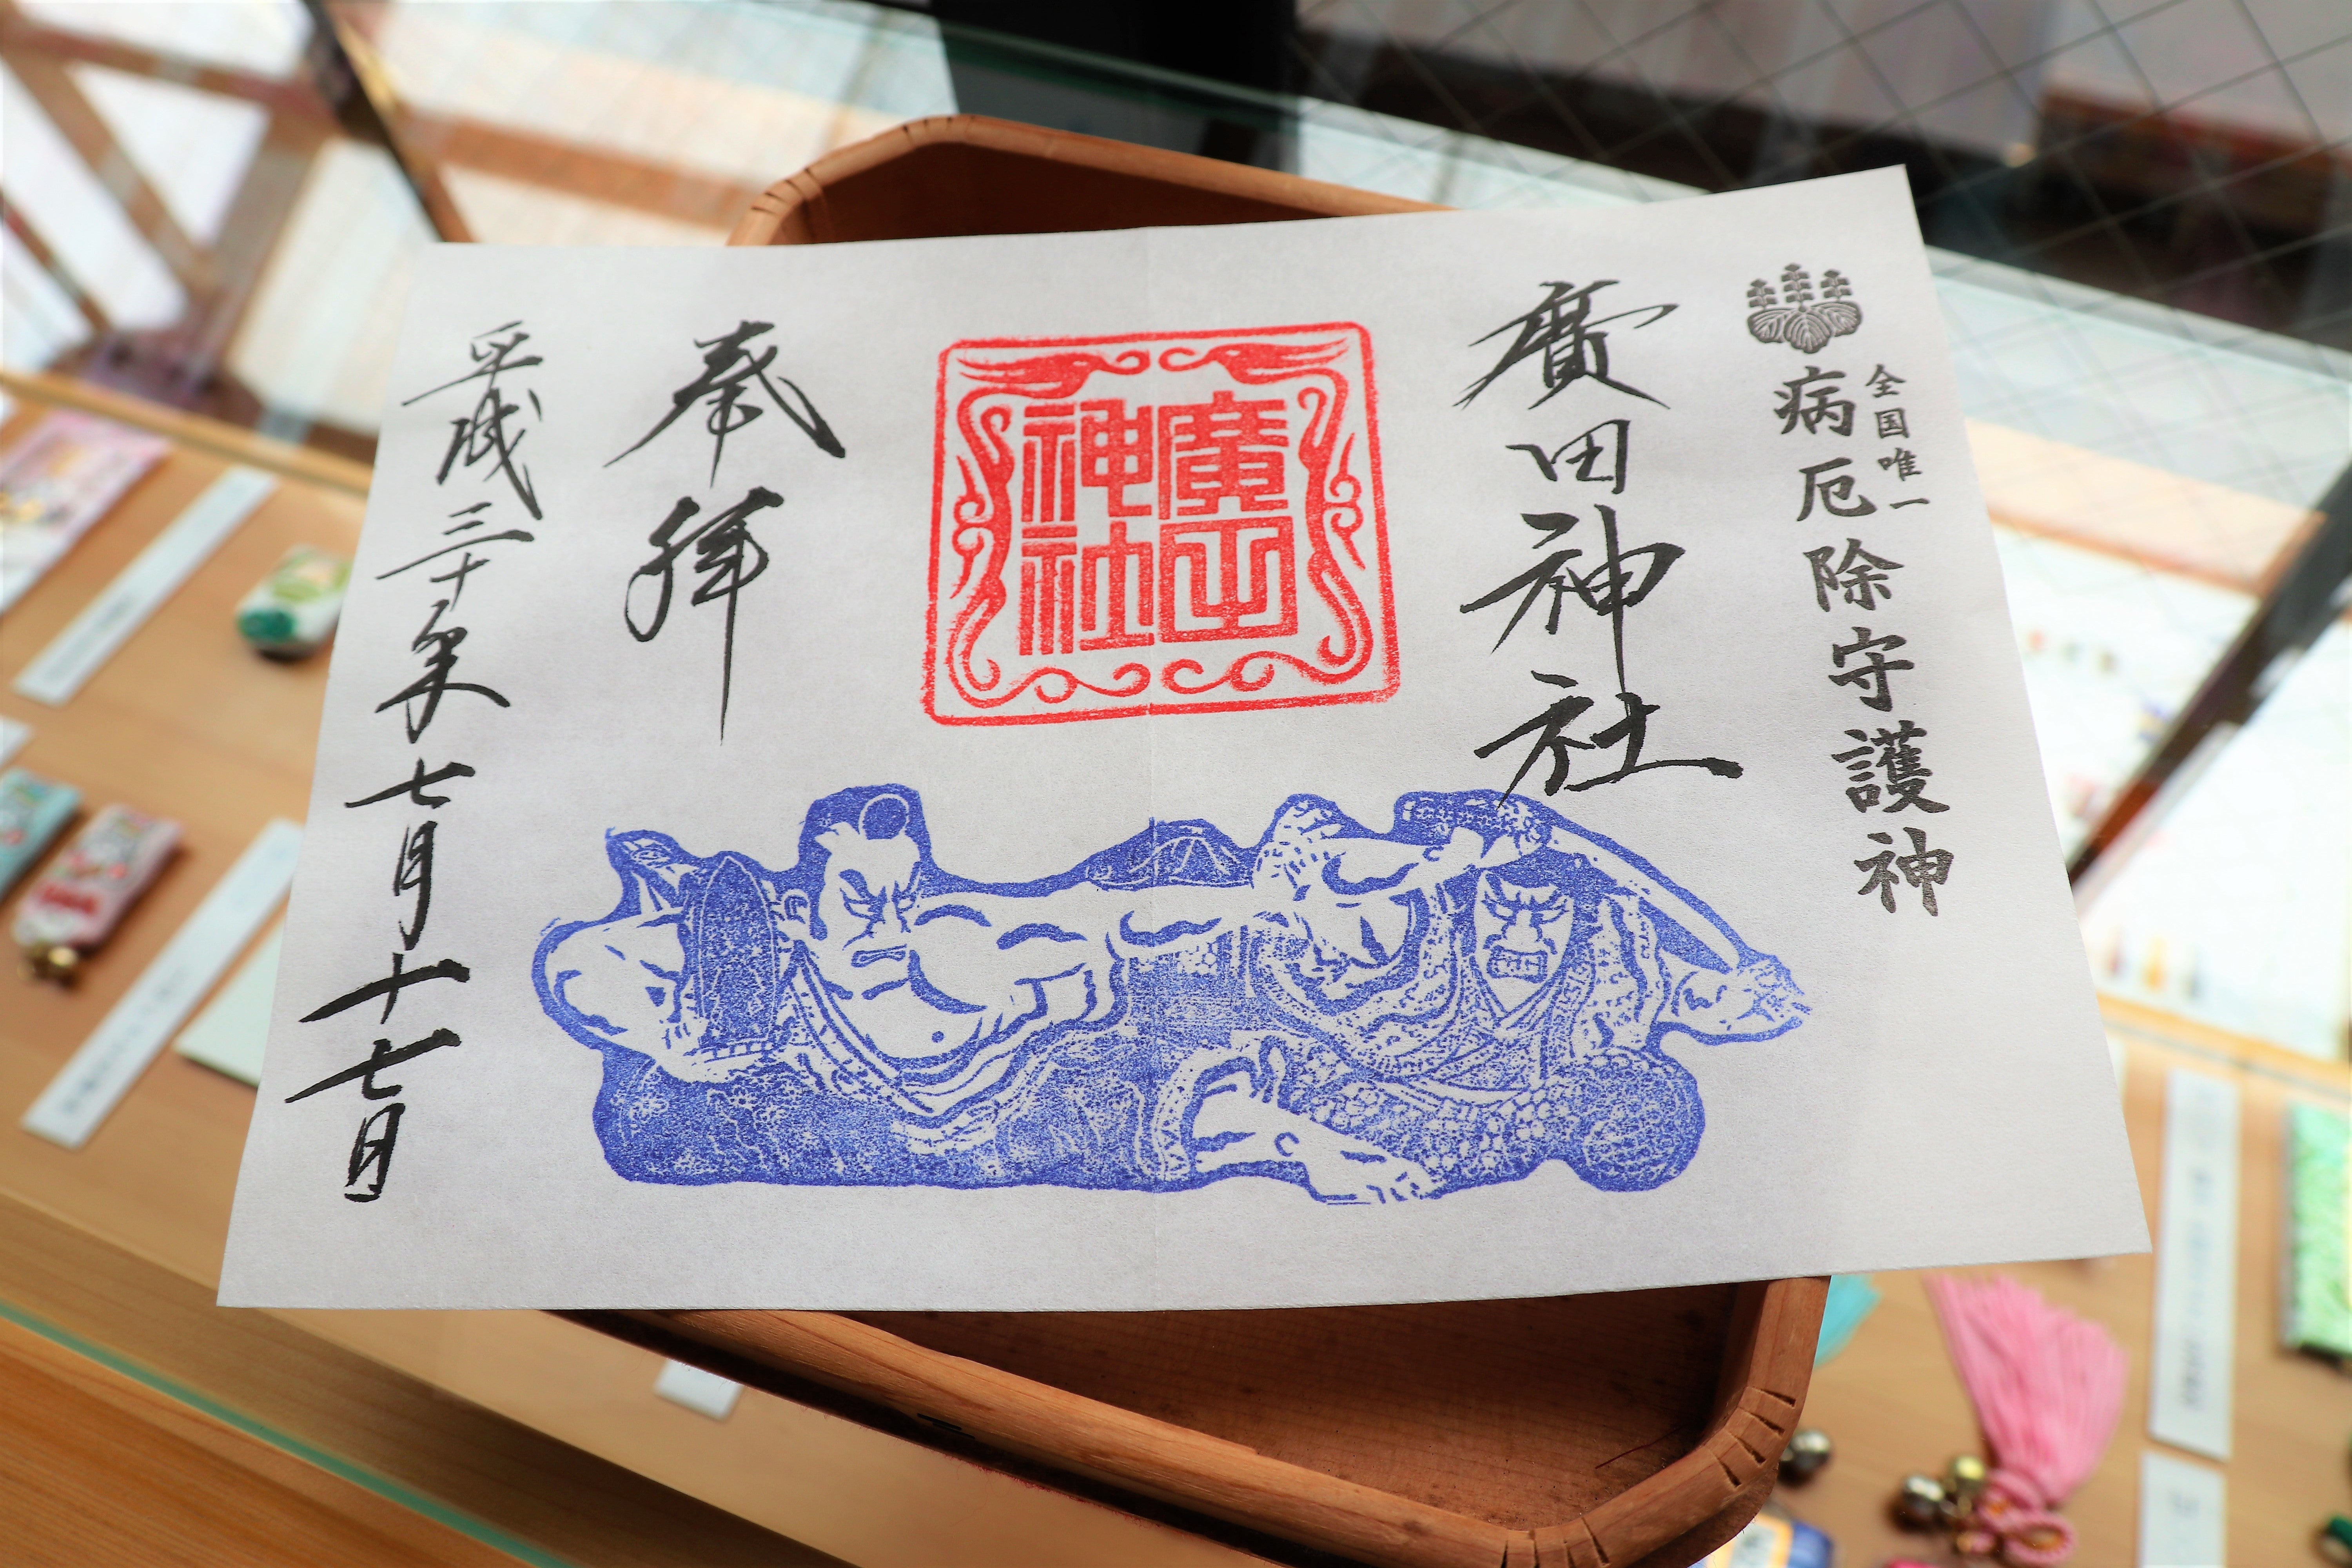 全国唯一
病厄除守護神
廣田神社
廣田
神社
奉拝
平成三十年七月十七日